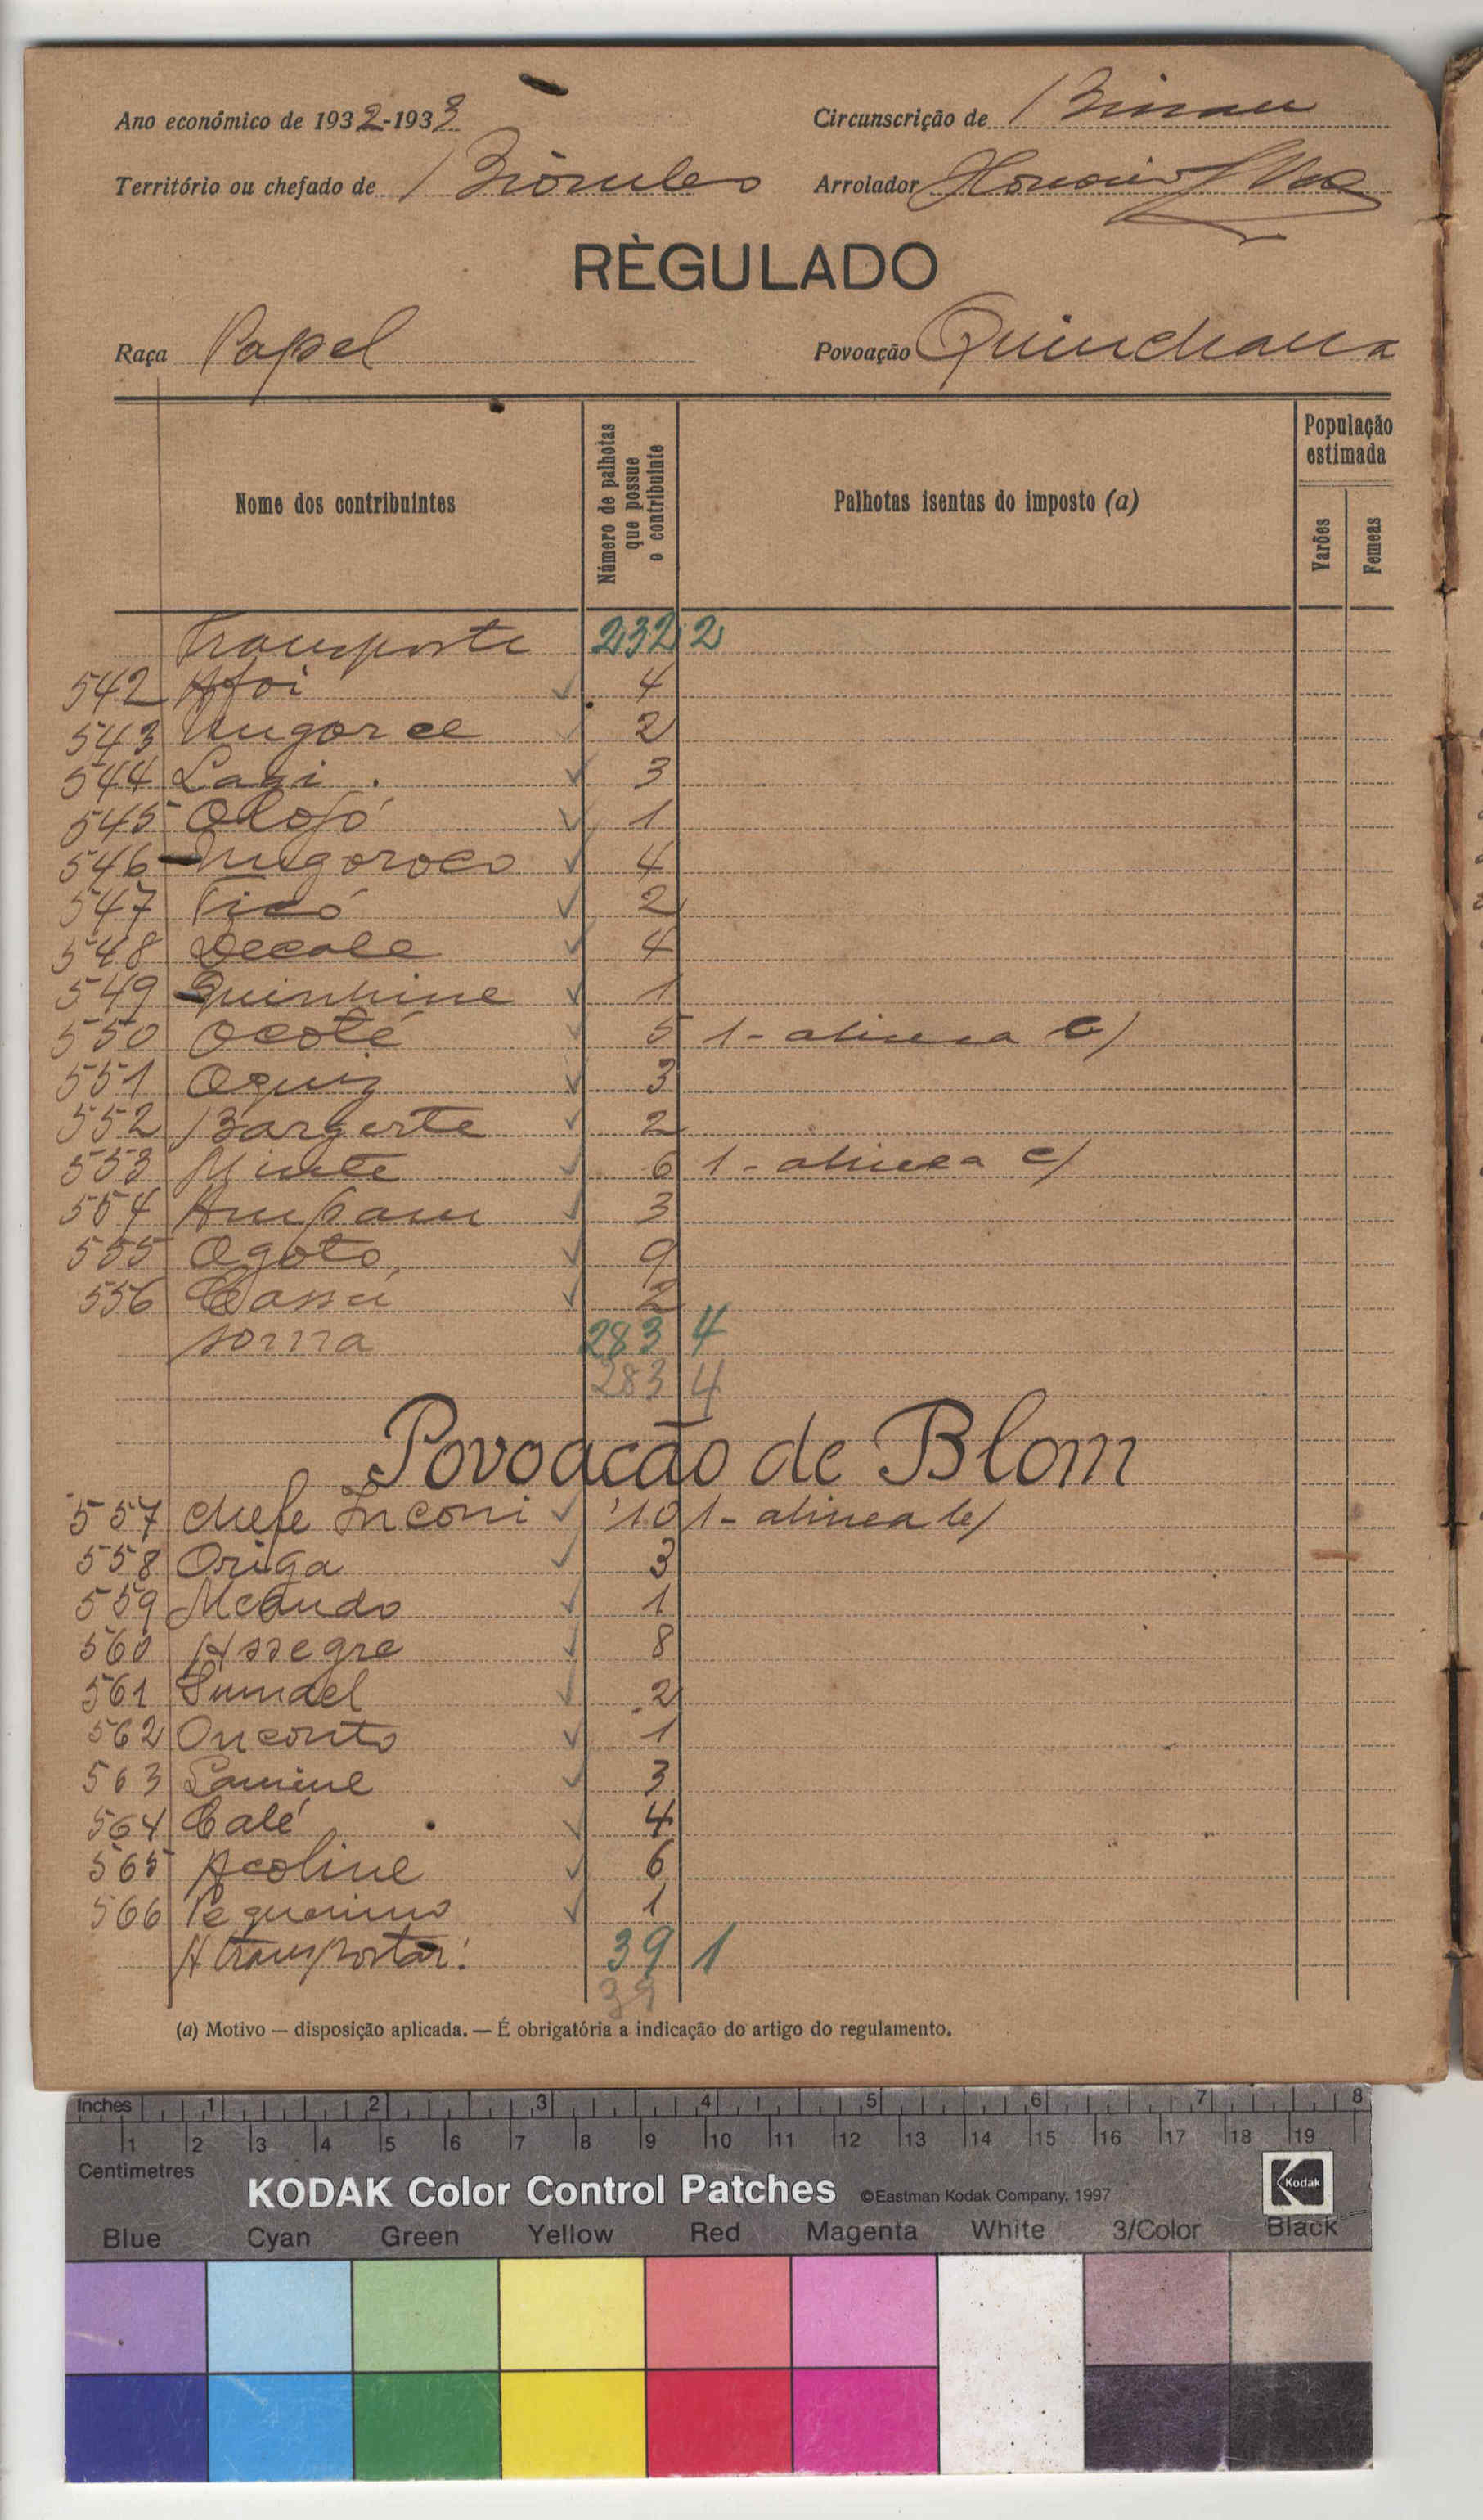 Ano económico de 1932-1933
Circunscrição de Bissau
Território ou chefado de Biombo
Arrolador
RÈGULADO
Raça Papel
Povoação
Nome dos contribuintes
Número de palhotas que possue o contribuinte
Palhotas isentas do imposto (a)
População estimada
Varões
Femeas
Transporte 232 2
542 Afoi 4
543 2
544 3
545 Olofó 1
546 Ungoroco 4
547 Ticó 2
548 Decale 4
549 Quinhine 1
550 Ocoté 5 1-alinea c)
551 Oquiz 3
552 2
553 Minte 6 1-alinea c)
554 3
555 Ogoto 9
556 Cassu 2
soma 283 4
283 4
Povoacão de Blom
557 chefe Inconi 10 1-alinea b)
558 Origa 3
559 1
560 Assegre 8
561 2
562 Onconto 1
563 Lamine 3
564 Calé 4
565 Acoline 6
566 Pequenino 1
A transportar: 39 1
39
(a) Motivo — disposição aplicada. — É obrigatória a indicação do artigo do regulamento.
Inches 1 2 3 4 5 6 7 8
1 2 3 4 5 6 7 8 9 10 11 12 13 14 15 16 17 18 19
Centimetres
KODAK Color Control Patches ©Eastman Kodak Company, 1997 Kodak
Blue Cyan Green Yellow Red Magenta White 3/Color Black